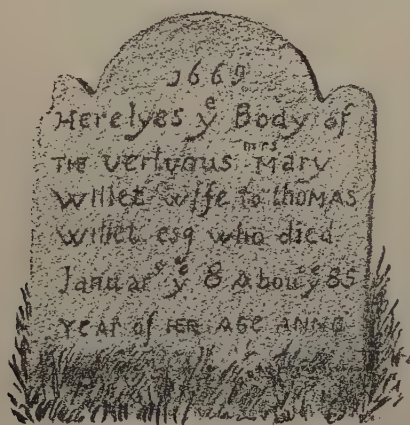 1669
Here lyes yᵉ Body of
THE vertuous mrs Mary
Willet wife To thOMAS
Willet esq who died
Januarʸ yᵉ 8 Abou yᵉ 85
year of HER AGE ANNO